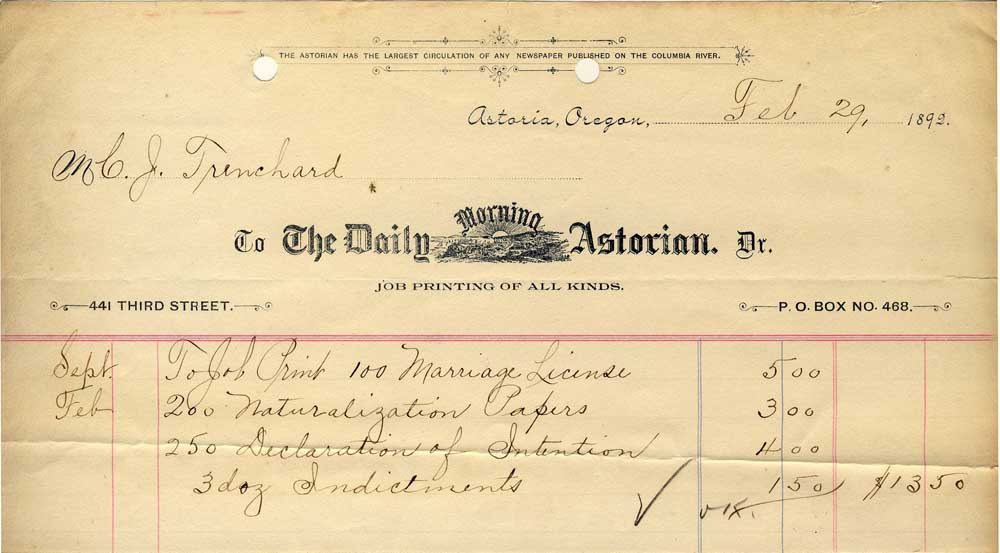 THE ASTORIAN HAS THE LARGEST CIRCULATION OF ANY NEWSPAPER PUBLISHED ON THE COLUMBIA RIVER.
Astoria, Oregon, Feb 29, 1892.
M C. J. Trenchard
To The Daily Morning Astorian. Dr.
JOB PRINTING OF ALL KINDS.
441 THIRD STREET. P. O. BOX NO. 468.
Sept To Job Print 100 Marriage License 5 00
Feb 200 Naturalization Papers 3 00
250 Declaration of Intention 4 00
3 doz Indictments 1 50 $13 50